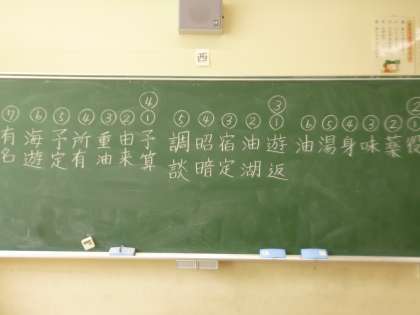 西
②薬
③味
④身
⑤湯
⑥油
③
①遊返
②油湖
③宿定
④昭暗
⑤調談
④
①予算
②由来
③重油
④所有
⑤予定
⑥海遊
⑦有名